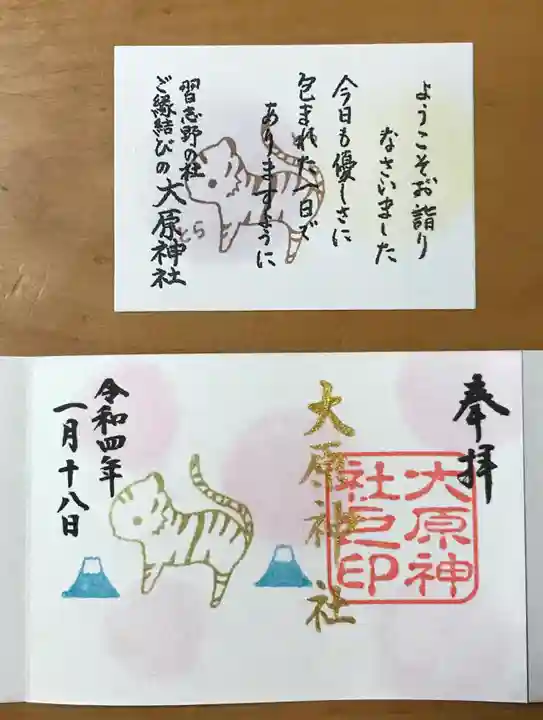 ようこそお詣り
なさいました
今日も優しさに
包まれた一日で
ありますように
習志野の社
ご縁結びの
大原神社
とら
奉拝
大原神社
大原神
社之印
令和四年
一月十八日